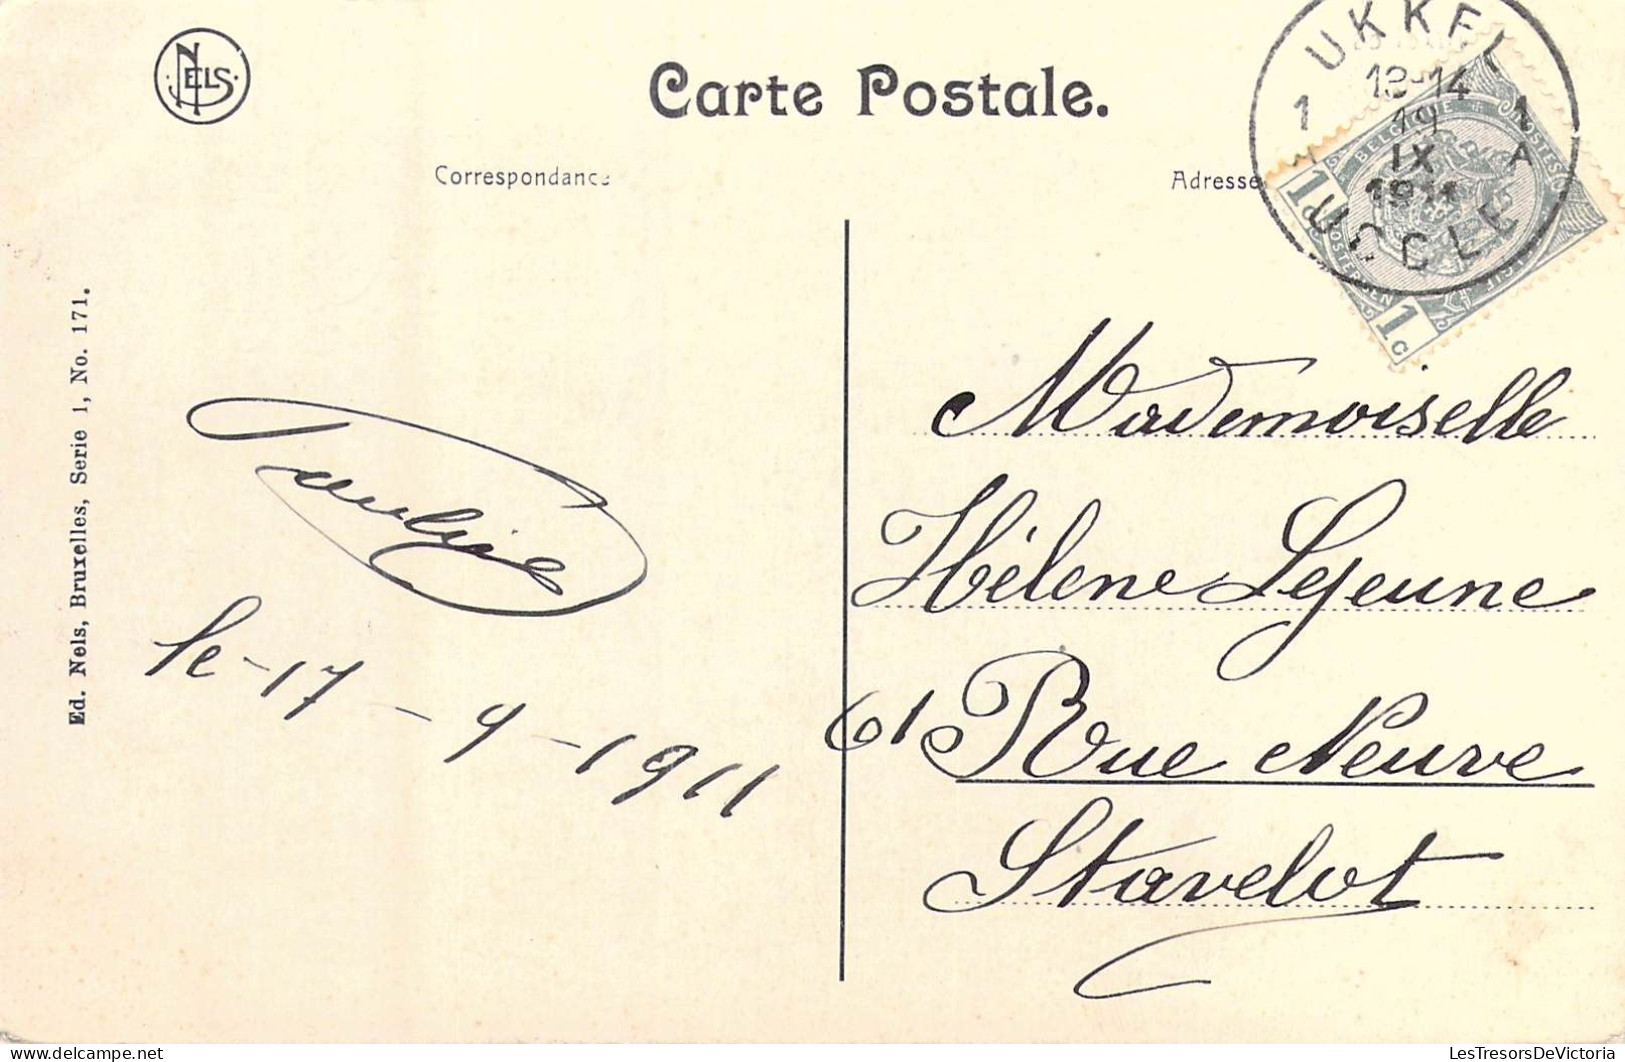 NELS
Carte Postale.
Correspondance
Adresse
UKKEL
13-14
1 19 1
IX
A A
1911
UCCLE
BELGIQUE
POSTES
1
1c
Ed. Nels, Bruxelles, Serie 1, No. 171.
le - 17 - 9 - 1911
Mademoiselle
Hélène Lejeune
61 Rue Neuve
Stavelot
LesTresorsDeVictoria